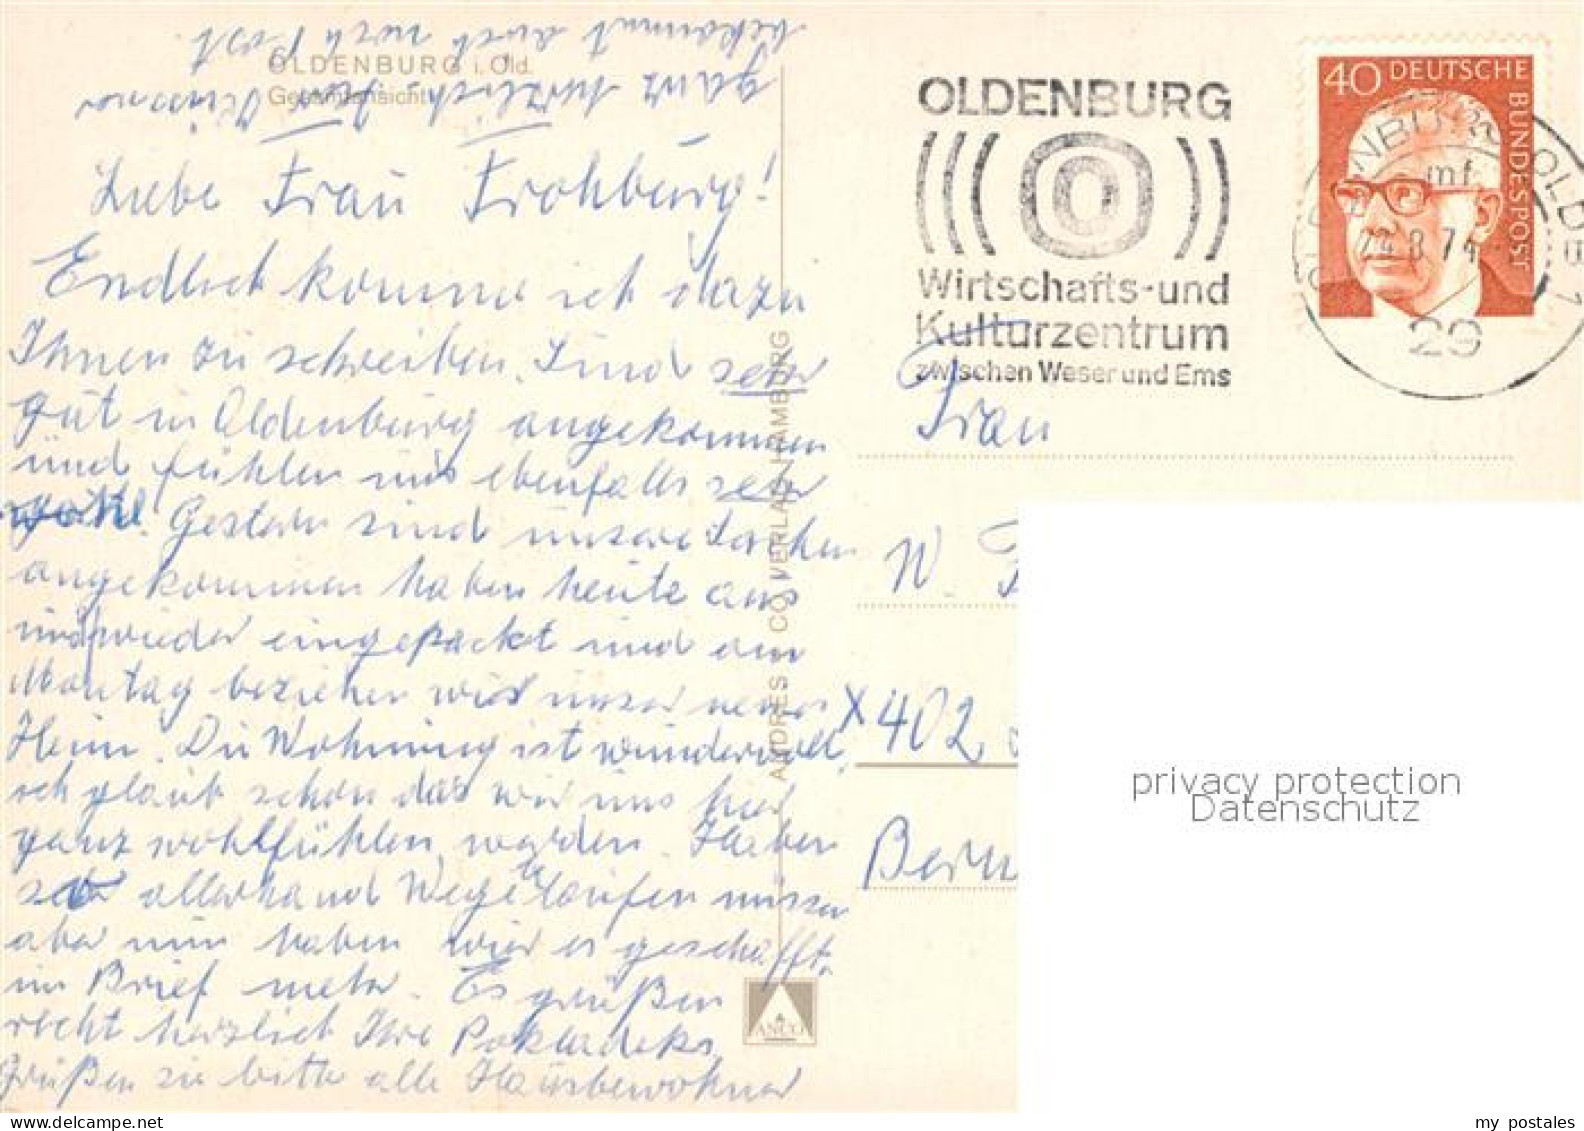 OLDENBURG i. Old.
Gesamtansicht
bekommt auch noch Post
ganz herzlich
Liebe Frau Frohburg!
Endlich komme ich dazu
Ihnen zu schreiben. Sind sehr
gut in Oldenburg angekommen
und fühlen uns ebenfalls sehr
wohl. Gestern sind unsere Sachen
angekommen haben heute aus
und wieder eingepackt und am
Montag beziehen wir unser neues
Heim. Die Wohnung ist wundervoll,
ich glaub schon das wir uns hier
ganz wohlfühlen werden. Haben
allerhand Wege laufen müssen
aber nun haben wir es geschafft.
im Brief mehr. Es grüßen
recht herzlich Ihre Pokładeks,
Grüßen sie bitte alle Hausbewohner
ANDRES + CO VERLAG HAMBURG
ANCO
OLDENBURG
Wirtschafts-und
Kulturzentrum
zwischen Weser und Ems
40 DEUTSCHE
BUNDESPOST
OLDENBURG OLDB 1
mf
8.74
29
Frau
W. F
X 402
Bern
privacy protection
Datenschutz
my postales